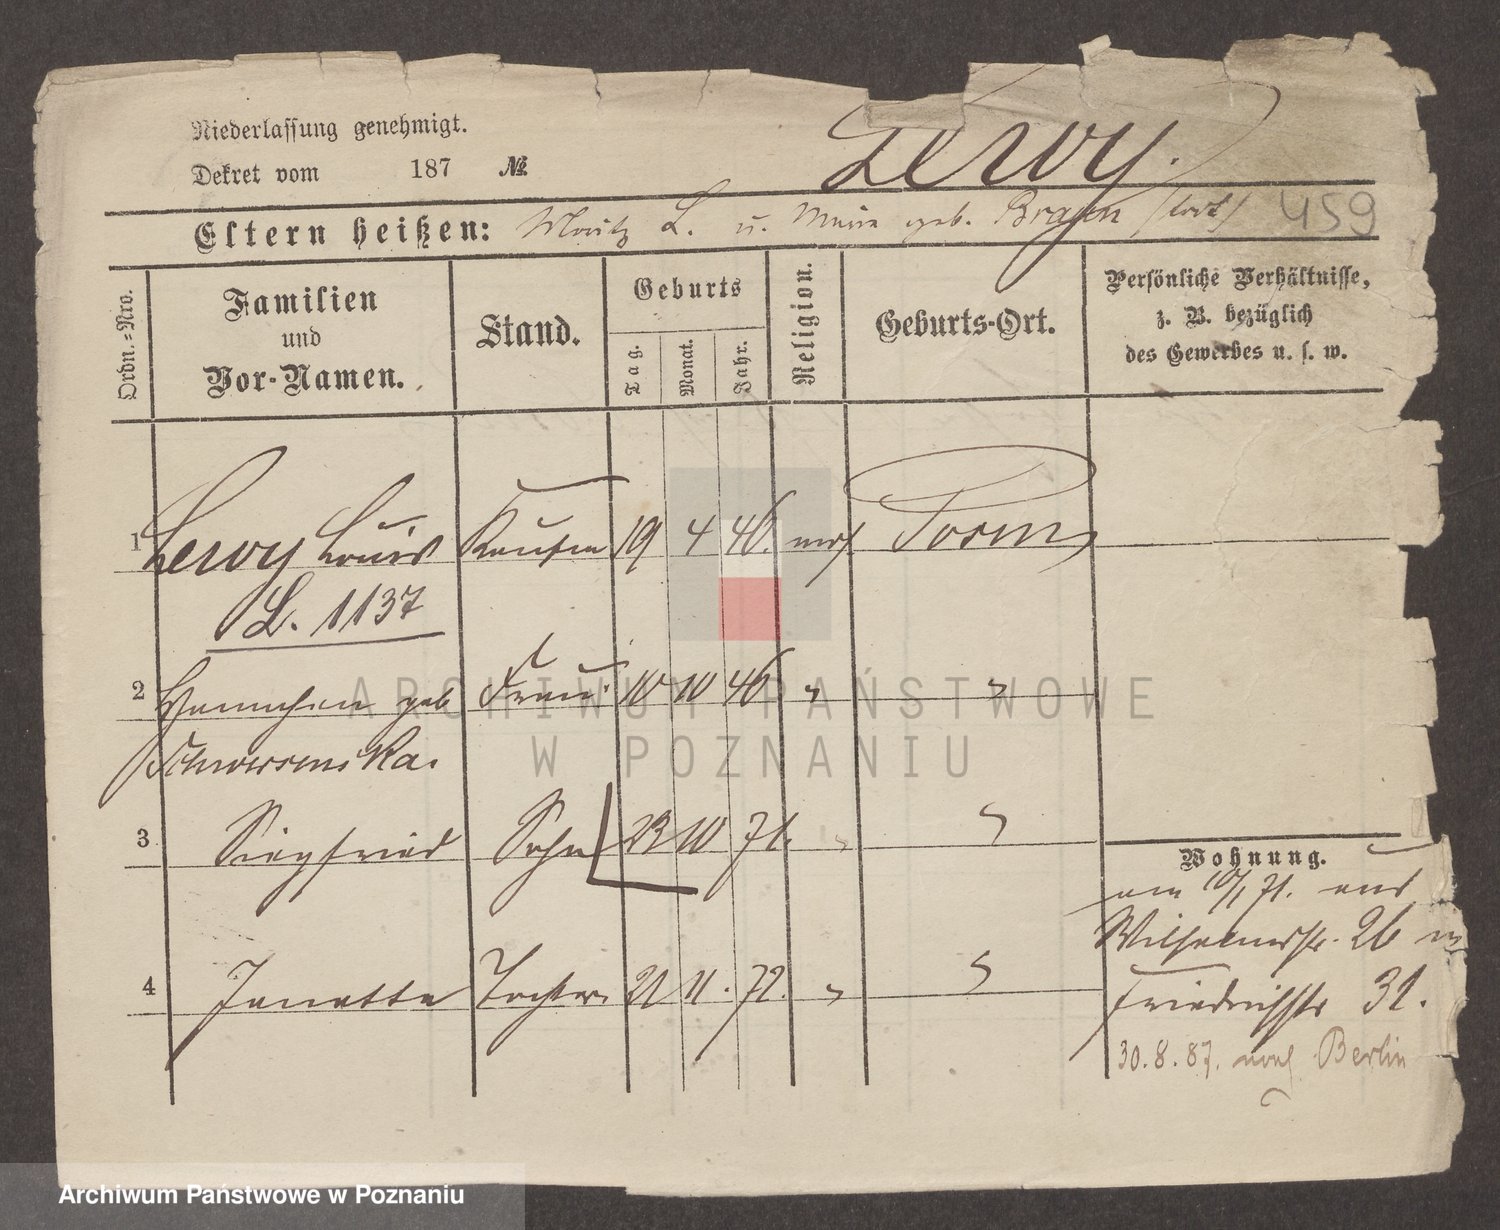 Niederlassung genehmigt.
Dekret vom 187 №
Leroy.
Eltern heißen: Moritz L. u. geb. 459
Ordn.=Nro.
Familien
und
Vor-Namen.
Stand.
Geburts
Tag.
Monat.
Jahr.
Religion.
Geburts-Ort.
Persönliche Verhältnisse,
z. B. bezüglich
des Gewerbes u. s. w.
1 Leroy Louis Kaufm 19 4 46. mos Posen
L. 1137
2 Hannchen geb Frau 10 10 46 "
Schwersenska.
3 Siegfried Sohn 23 10 71. " "
4 Janette Tochter 21 11. 72. " "
Wohnung.
am 10/1 71. aus
Wilhelmsstr. 26 n
Friedrichstr 31.
30.8.87. nach Berlin
ARCHIWUM PAŃSTWOWE
W POZNANIU
Archiwum Państwowe w Poznaniu